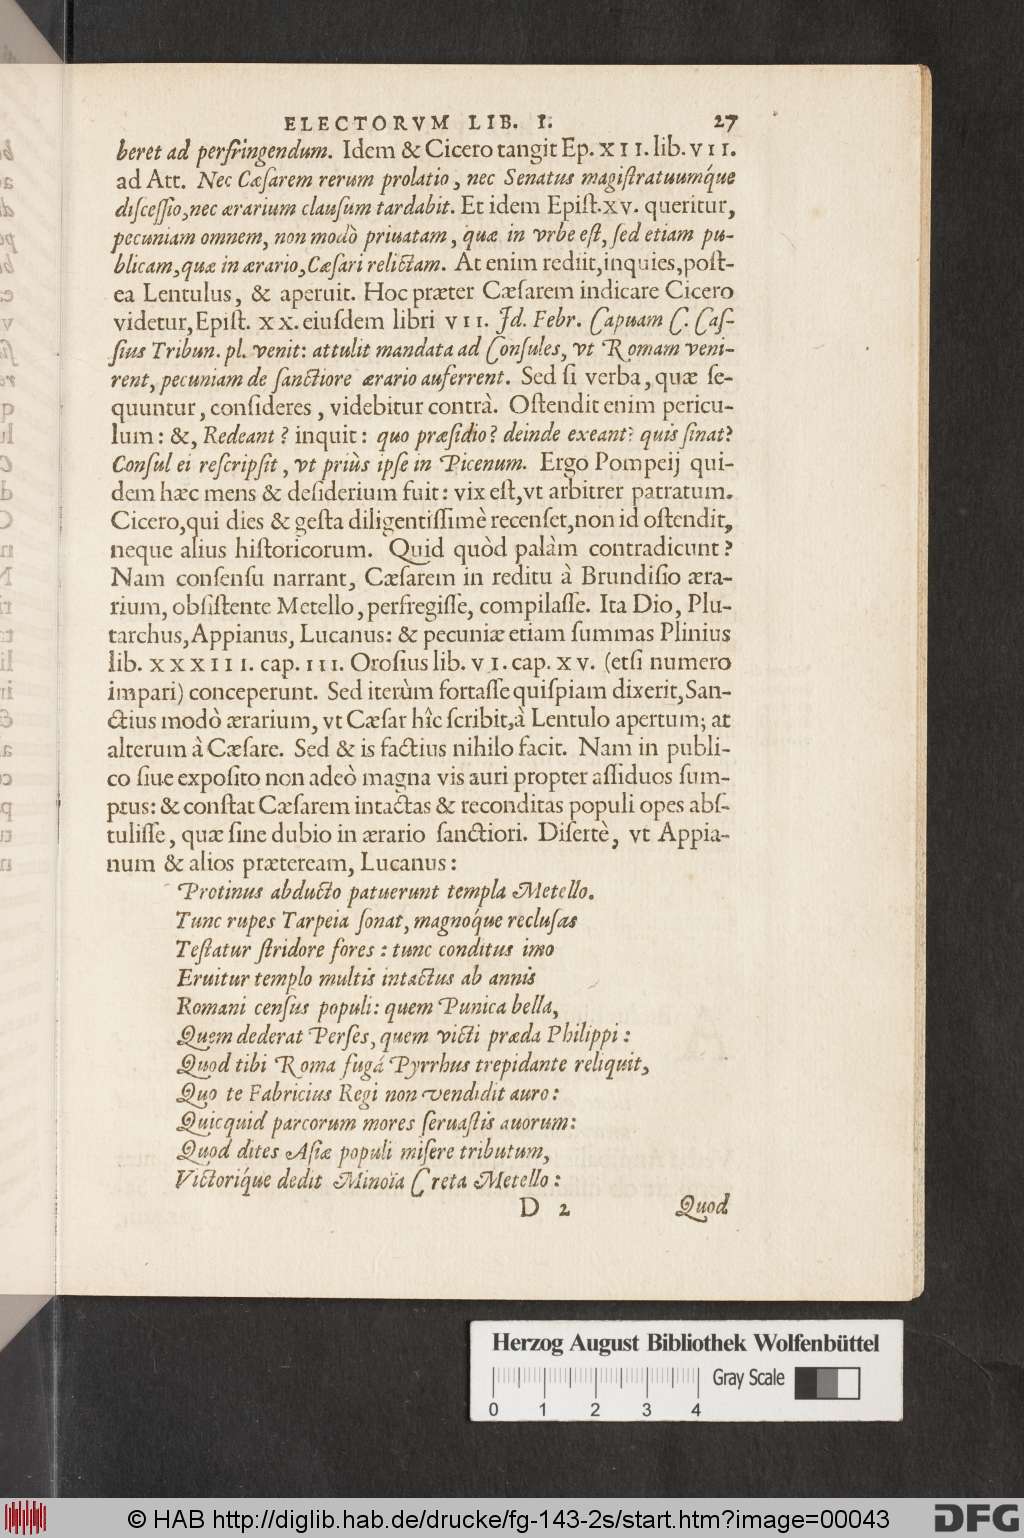 ELECTORVM LIB. I. 27
beret ad perfringendum. Idem & Cicero tangit Ep. XII. lib. VII.
ad Att. Nec Cæſarem rerum prolatio, nec Senatus magiſtratuumq́ue
diſceſſio, nec ærarium clauſum tardabit. Et idem Epiſt. XV. queritur,
pecuniam omnem, non modò priuatam, quæ in vrbe eſt, ſed etiam pu-
blicam, quæ in ærario, Cæſari relictam. At enim rediit, inquies, poſt-
ea Lentulus, & aperuit. Hoc præter Cæſarem indicare Cicero
videtur, Epiſt. XX. eiuſdem libri VII. Id. Febr. Capuam C. Caſ-
ſius Tribun. pl. venit: attulit mandata ad Conſules, vt Romam veni-
rent, pecuniam de ſanctiore ærario auferrent. Sed ſi verba, quæ ſe-
quuntur, conſideres, videbitur contrà. Oſtendit enim pericu-
lum: &, Redeant? inquit: quo præſidio? deinde exeant? quis ſinat?
Conſul ei reſcripſit, vt priùs ipſe in Picenum. Ergo Pompeij qui-
dem hæc mens & deſiderium fuit: vix eſt, vt arbitrer patratum.
Cicero, qui dies & geſta diligentiſſimè recenſet, non id oſtendit,
neque alius hiſtoricorum. Quid quòd palàm contradicunt?
Nam conſenſu narrant, Cæſarem in reditu à Brundiſio æra-
rium, obſiſtente Metello, perfregiſſe, compilaſſe. Ita Dio, Plu-
tarchus, Appianus, Lucanus: & pecuniæ etiam ſummas Plinius
lib. XXXIII. cap. III. Oroſius lib. VI. cap. XV. (etſi numero
impari) conceperunt. Sed iterùm fortaſſe quiſpiam dixerit, San-
ctius modò ærarium, vt Cæſar hîc ſcribit, à Lentulo apertum; at
alterum à Cæſare. Sed & is factius nihilo facit. Nam in publi-
co ſiue expoſito non adeò magna vis auri propter aſſiduos ſum-
ptus: & conſtat Cæſarem intactas & reconditas populi opes abſ-
tuliſſe, quæ ſine dubio in ærario ſanctiori. Diſertè, vt Appia-
num & alios præteream, Lucanus:
Protinus abducto patuerunt templa Metello.
Tunc rupes Tarpeia ſonat, magnoq́ue recluſas
Teſtatur ſtridore fores: tunc conditus imo
Eruitur templo multis intactus ab annis
Romani cenſus populi: quem Punica bella,
Quem dederat Perſes, quem victi præda Philippi:
Quod tibi Roma fugâ Pyrrhus trepidante reliquit,
Quo te Fabricius Regi non vendidit auro:
Quicquid parcorum mores ſeruaſtis auorum:
Quod dites Aſiæ populi miſere tributum,
Victoriq́ue dedit Minoïa Creta Metello:
D 2 Quod
Herzog August Bibliothek Wolfenbüttel
Gray Scale
0 1 2 3 4
© HAB http://diglib.hab.de/drucke/fg-143-2s/start.htm?image=00043
DFG